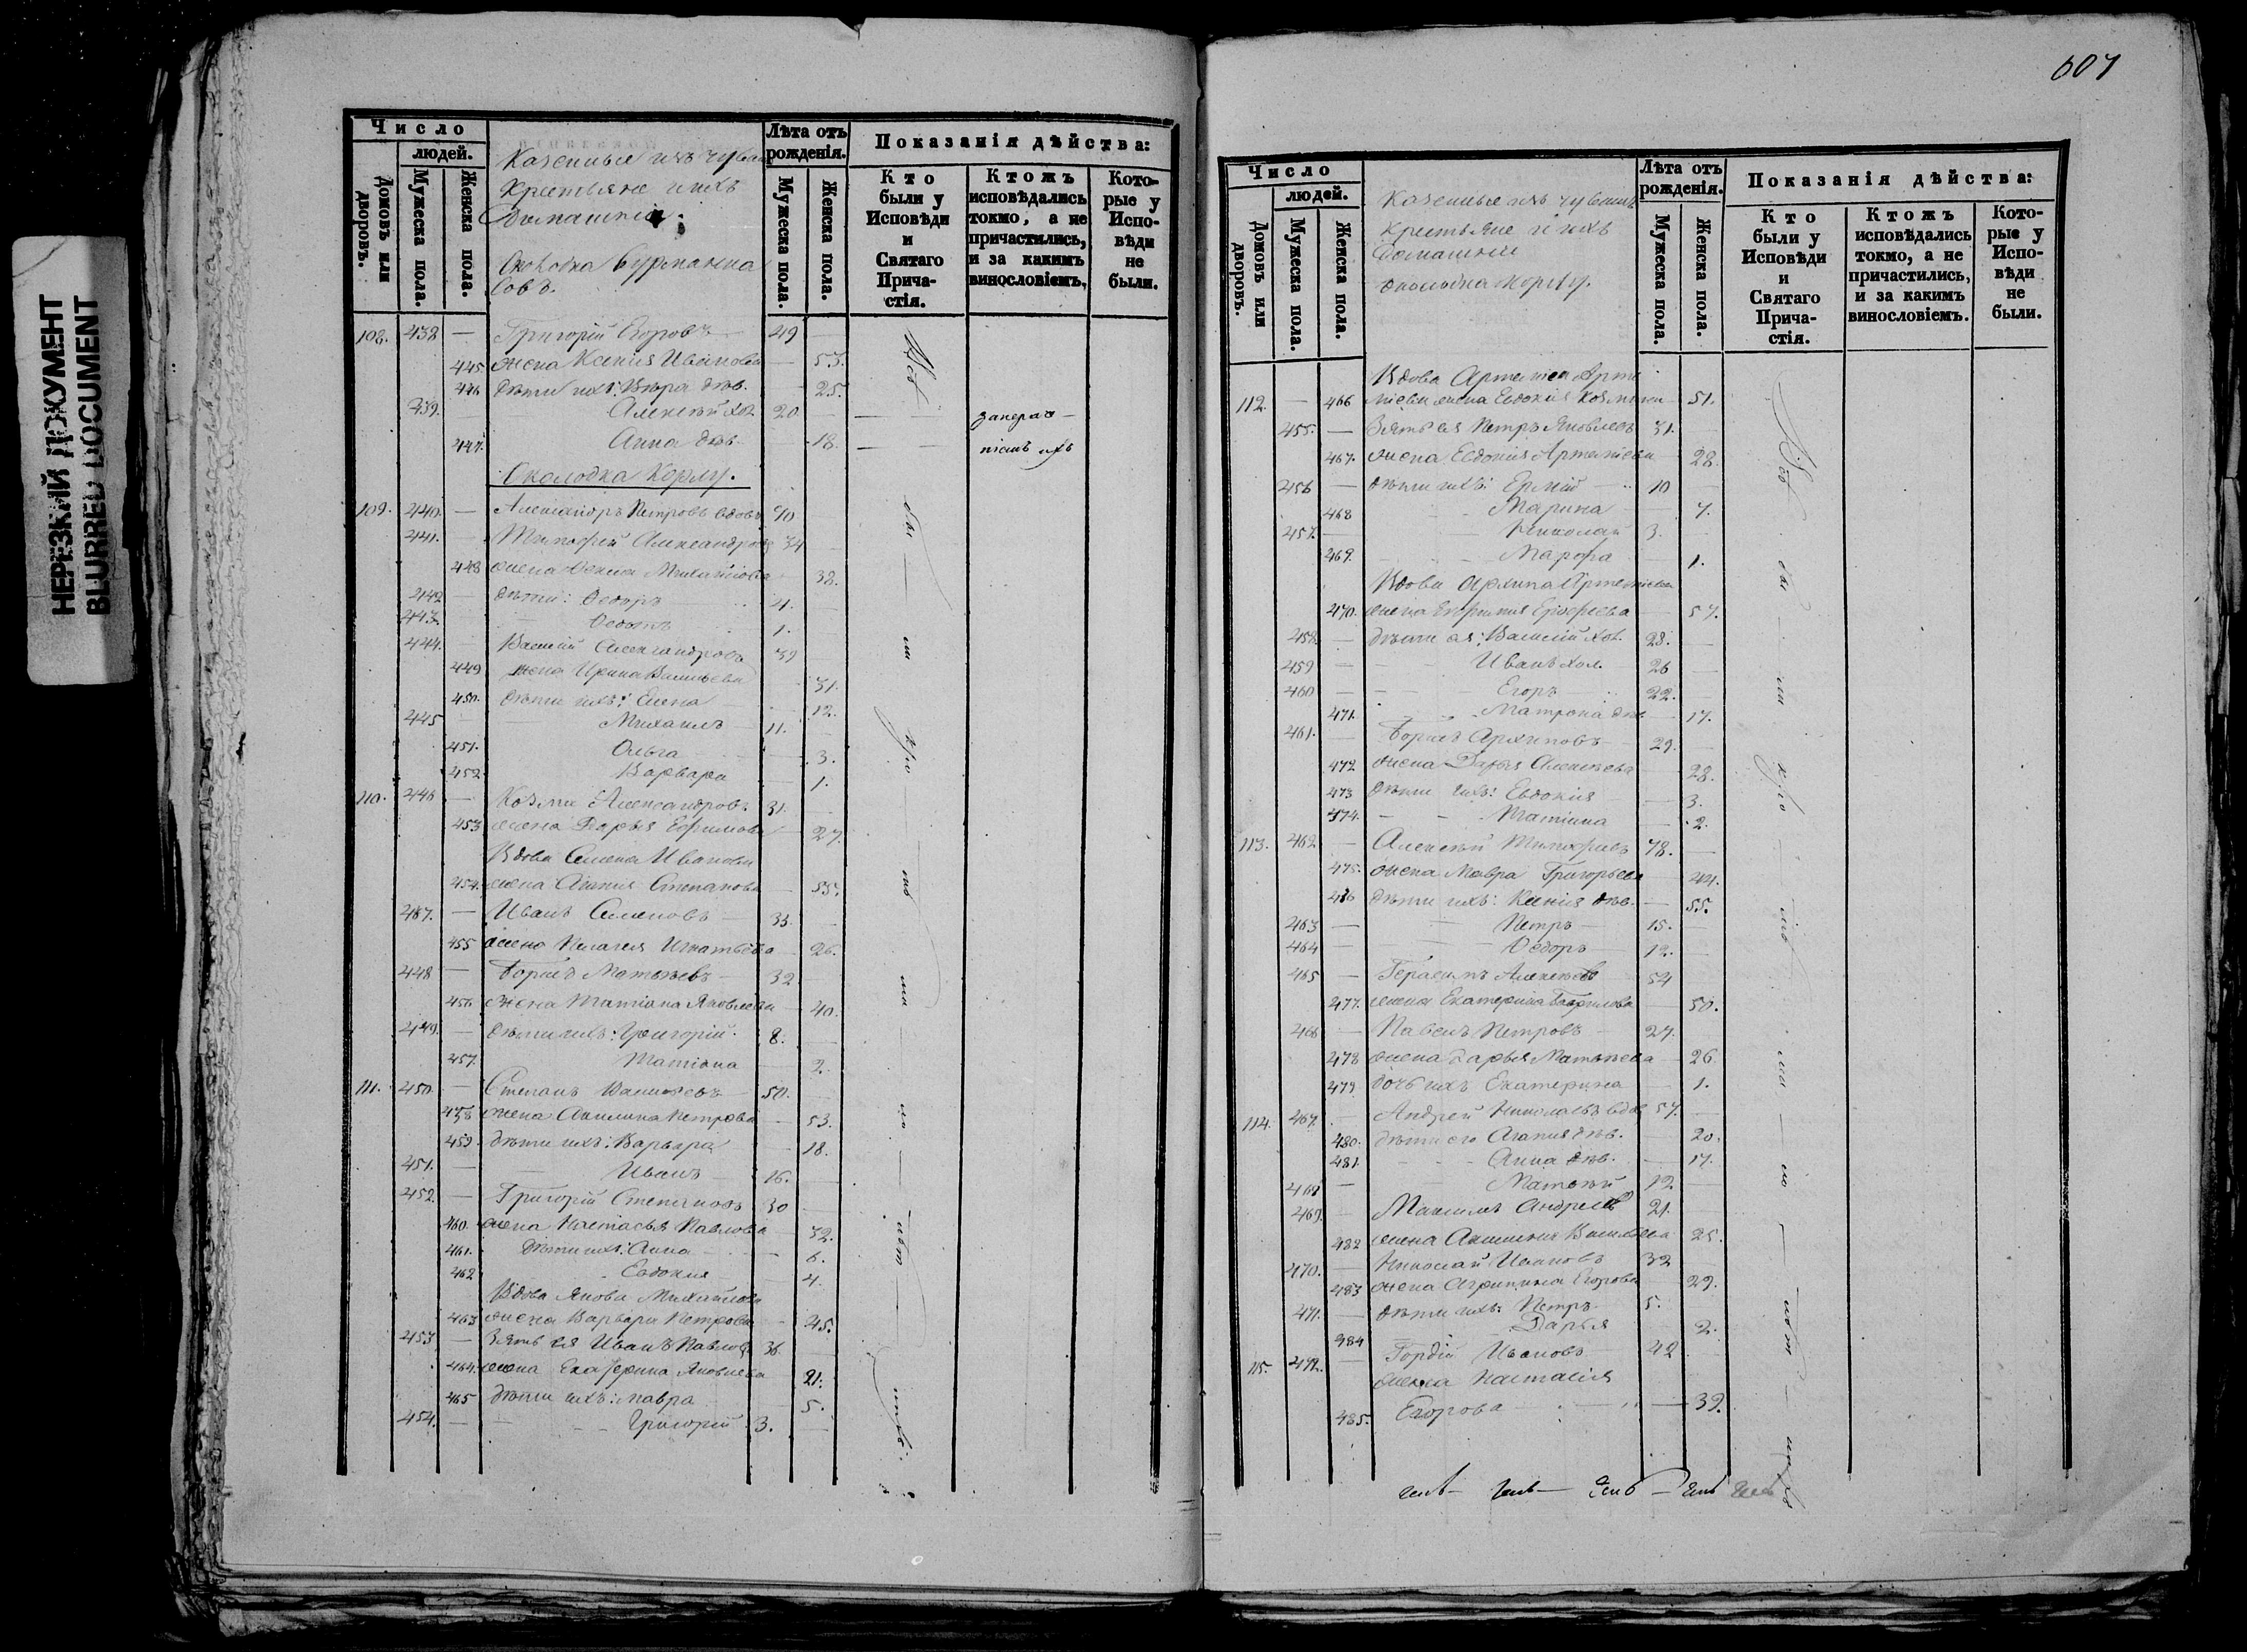 НЕРЕЗКИЙ ДОКУМЕНТ
BLURRED DOCUMENT
Число
людей.
Домовъ или дворовъ.
Мужеска пола.
Женска пола.
Казенные изъ чуваш
крестьяне и ихъ
домашніе
Околодка
Лѣта отъ рожденія.
Мужеска пола.
Женска пола.
Показанія дѣйства:
Кто были у Исповѣди и Святаго Прича-стія.
Ктожъ исповѣдались токмо, а не причастились, и за какимъ винословіемъ.
Кото-рые у Испо-вѣди не были.
108. 438 — Григорій Егоровъ 49 —
445 жена Ксенія Иванова — 53.
446 дѣти ихъ: Вѣра дѣв. 25.
439. — Алексѣй хол. 20 —
447. Анна дѣв. — 18.
Околодка Корлу.
109. 440. — Александръ Петровъ вдовъ 70
441. — Тимофей Александровъ 34 —
448 жена Михайлова 38.
442 — дѣти: Ѳедоръ 4. —
443. — Ѳедотъ 1.
444. — Василій Александровъ 39
449 жена Ирина Васильева 31.
450. дѣти ихъ: Елена 12.
445 — Михаилъ 11.
451. Ольга 3.
452. Варвара 1.
110. 446 — Козма Александровъ 31.
453 жена Дарья Ефимова 27.
Вдова Семена Иванова
454. жена Агапія Степанова 55.
447. — Иванъ Семеновъ 33.
455 жена Пелагея Игнатьева 26.
448 — Борисъ Матвѣевъ 32
456 жена Татіана Яковлева 40.
449. — дѣти ихъ: Григорій 8.
457. Татіана 2.
111. 450. — Степанъ 50.
458 жена Акилина Петрова 53.
459. дѣти ихъ: Варвара 18.
451. — Иванъ 16.
452. — Григорій Степановъ 30
460. жена Настасья Павлова 32.
461. дѣти ихъ: Анна 6.
462 Евдокія 4.
Вдова Якова Михайлова
463 жена Варвара Петрова 45.
453 — Зять ея Иванъ Павловъ 36
464. жена Екатерина Яковлева 21.
465 дѣти ихъ: Мавра 5.
454. — Григорій 3.
607
Число
людей.
Домовъ или дворовъ.
Мужеска пола.
Женска пола.
Казенные изъ чувашъ
крестьяне и ихъ
домашніе
околодка Корлу.
Лѣта отъ рожденія.
Мужеска пола.
Женска пола.
Показанія дѣйства:
Кто были у Исповѣди и Святаго Прича-стія.
Ктожъ исповѣдались токмо, а не причастились, и за какимъ винословіемъ.
Кото-рые у Испо-вѣди не были.
Вдова Артемія Арте
112. — 466 міева жена Евдокія Козмина 51.
455. — Зять ея Петръ Яковлевъ 31.
467. жена Евдокія Артеміева 28.
456 — дѣти ихъ: Ермій 10
468 Марина 7.
457. — Николай 3.
469. Марфа 1.
Вдова Архипа Артеміева
470. жена 57.
458. — дѣти ея: Василій хол. 28.
459 — Иванъ хол. 26
460 — Егоръ 22.
471. Матрона дѣв 17.
461. — Борисъ Архиповъ 29.
472 жена Дарья Алексѣева 28.
473 дѣти ихъ: Евдокія 3.
474. Татіана 2.
113. 462 — Алексѣй 78.
475. жена Мавра Григорьева 44.
476 дѣти ихъ: Ксенія дѣв. 55.
463 — Петръ 15.
464 — Ѳедоръ 12.
465 — Герасимъ Алексѣевъ 54
477. жена Екатерина Гаврилова 50.
466 — Павелъ Петровъ 27.
478 жена Дарья Матвѣева 26
479 дочь ихъ Екатерина 1.
114. 467. — Андрей Николаевъ вдов 57.
480. дѣти его Агапія дѣв. 20.
481. Анна дѣв. 17.
468 — Матвѣй 12
469. Максимъ Андреевъ 21.
482 жена Васильева 25.
470. — Николай Ивановъ 32
483 жена Агрипина Егорова 29.
471. — дѣти ихъ: Петръ 5.
484 Дарья 2.
115. 472. — Гордій Ивановъ 42
жена Настасія
485. Егорова 39.